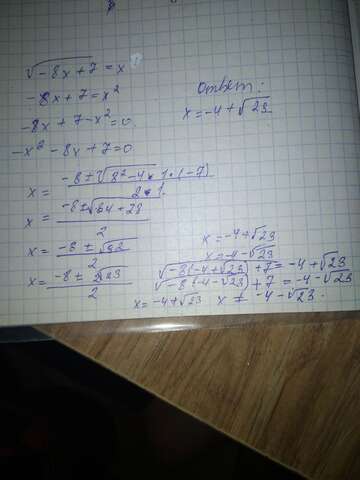 √-8x+7 = x
-8x+7=x²
-8x+7-x²=0
-x²-8x+7=0
x = -8±√8²-4*1*(-7) / 2*1
x = -8±√64+28 / 2
x = -8±√92 / 2
x = -8±2√23 / 2
Ответ:
x=-4+√23
x=-4+√23
x=-4-√23
√-8(-4+√23)+7=-4+√23
√-8(-4-√23)+7=-4-√23
x=-4+√23 x≠-4-√23.